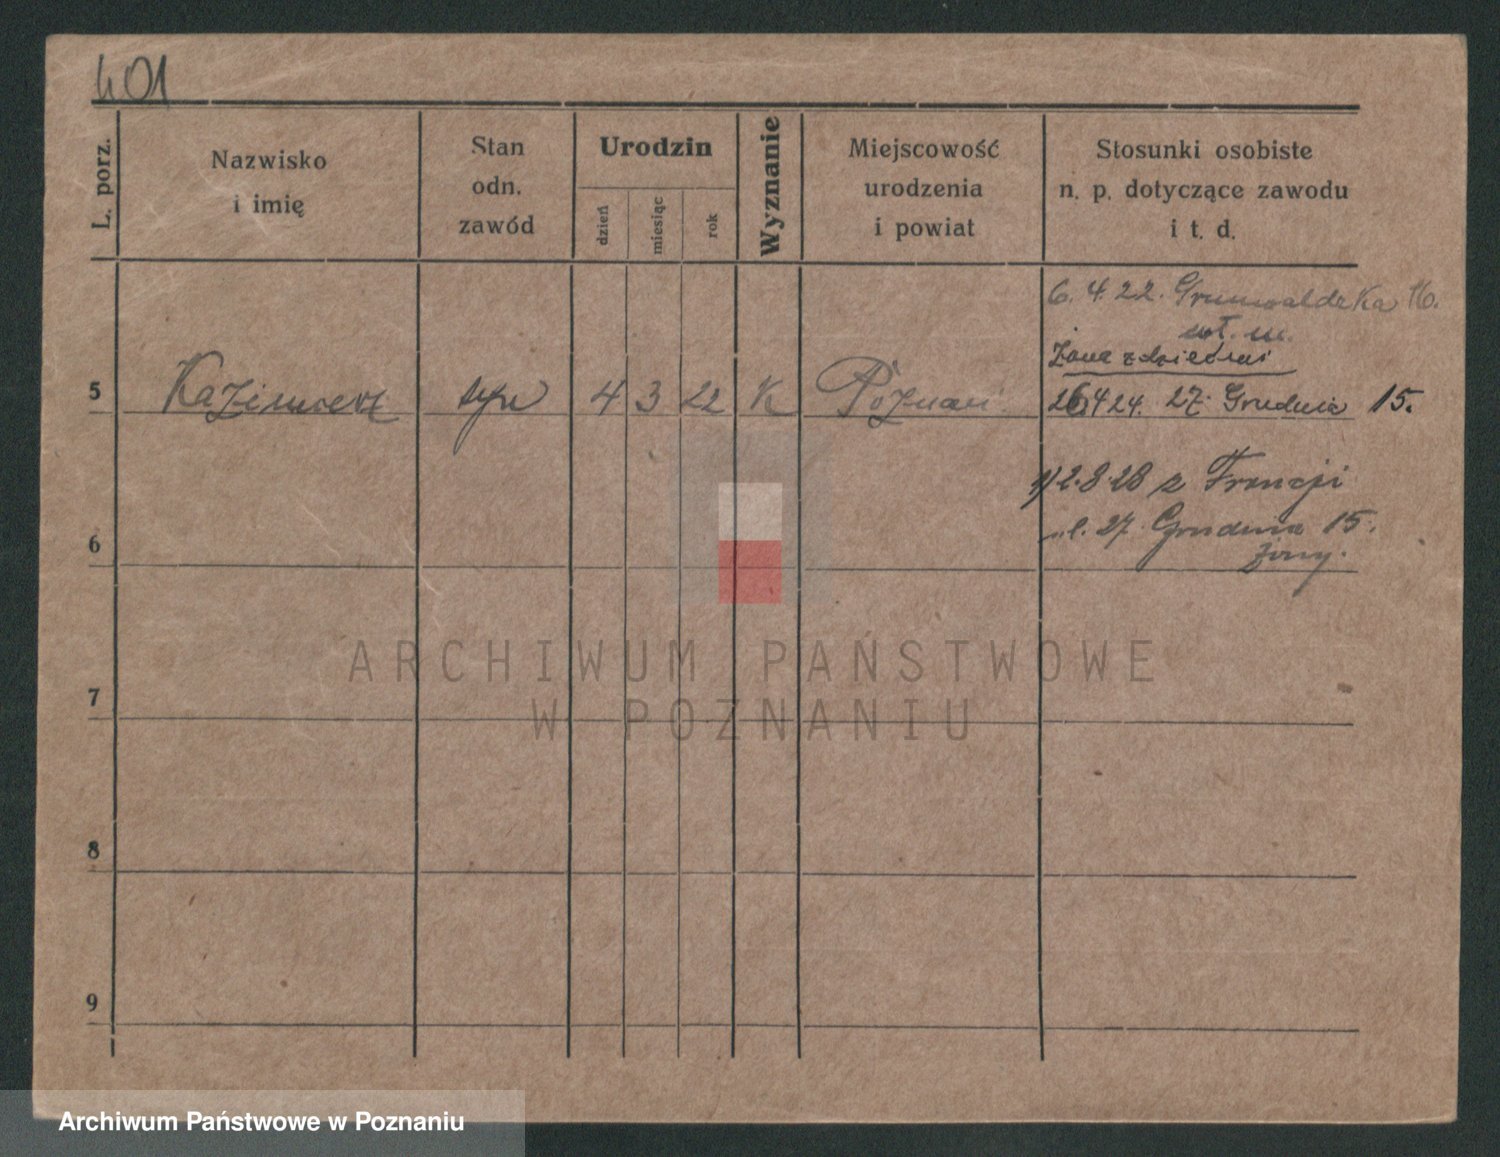 401
L. porz.
Nazwisko
i imię
Stan
odn.
zawód
Urodzin
dzień
miesiąc
rok
Wyznanie
Miejscowość
urodzenia
i powiat
Stosunki osobiste
n. p. dotyczące zawodu
i t. d.
6. 4. 22. Grunwaldzka 16.
wł. m.
Żona z dziećmi
5 Kazimierz syn 4 3 22 K Poznań 26.4 24. 27. Grudnia 15.
1) 2.8.28 z Francji
ul. 27. Grudnia 15.
żony.
6
7
8
9
ARCHIWUM PAŃSTWOWE
W POZNANIU
Archiwum Państwowe w Poznaniu